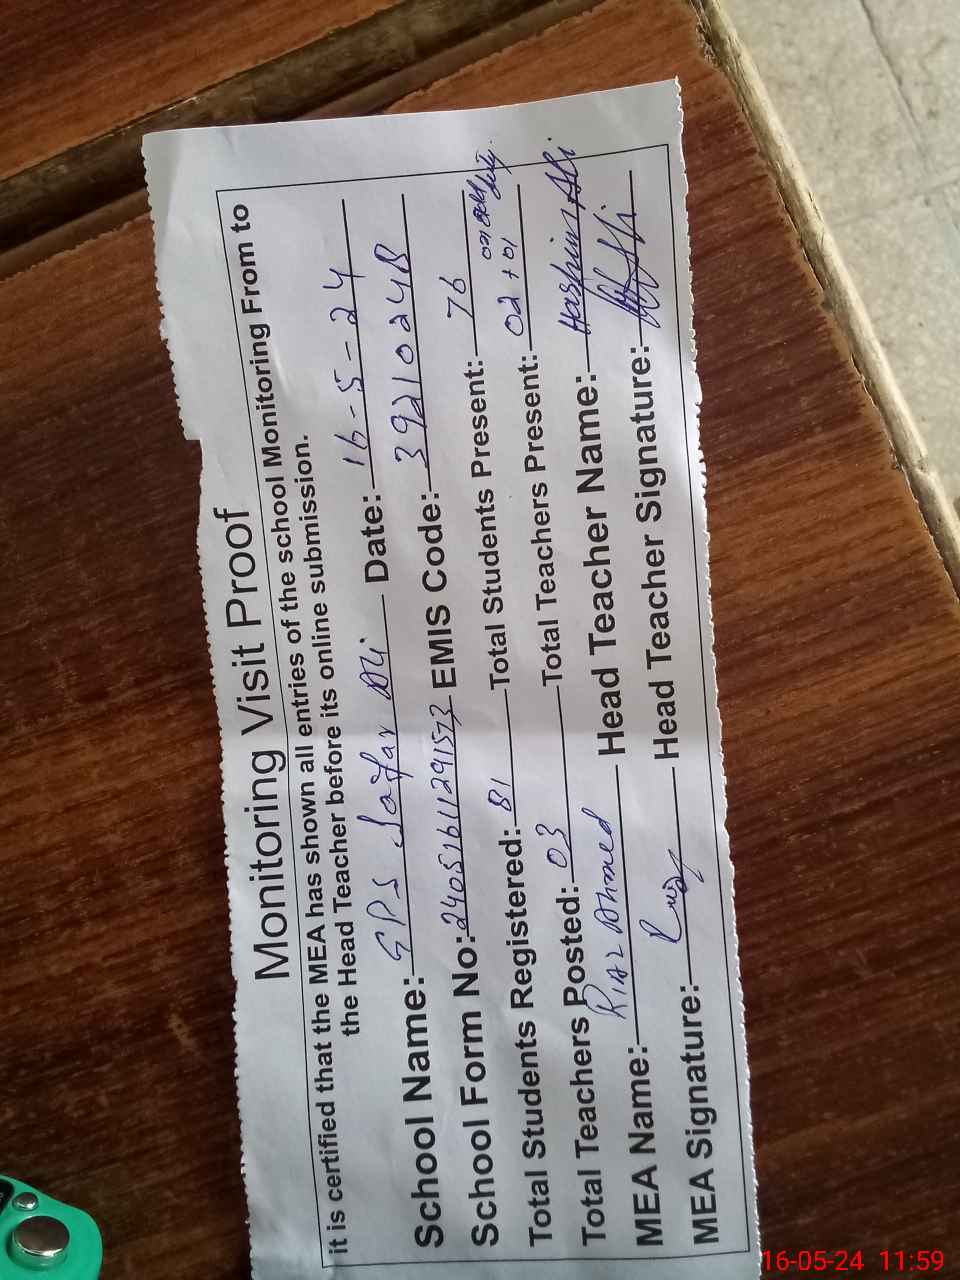 Monitoring Visit Proof
it is certified that the MEA has shown all entries of the school Monitoring From to
the Head Teacher before its online submission.
School Name: GPS Jafar Ali Date: 16-5-24
School Form No: 24051611291573 EMIS Code: 39210248
Total Students Registered: 81 Total Students Present: 76
Total Teachers Posted: 03 Total Teachers Present: 02 + 01 duty.
MEA Name: Riaz Ahmed Head Teacher Name: Hashim Ali
MEA Signature: Riaz Head Teacher Signature:
16-05-24 11:59